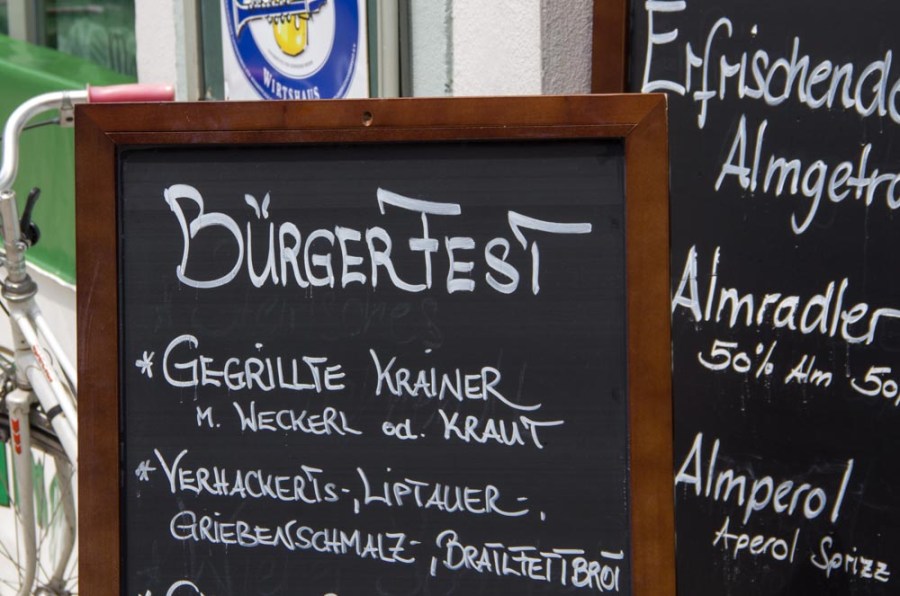 WIRTSHAUS
BÜRGERFEST
* GEGRILLTE KRAINER
M. WECKERL od. KRAUT
* VERHACKERTS-, LIPTAUER-,
GRIEBENSCHMALZ-, BRATLFETTBROT
Erfrischende
Almgetra
Almradler
50% Alm 50%
Almperol
Aperol Sprizz